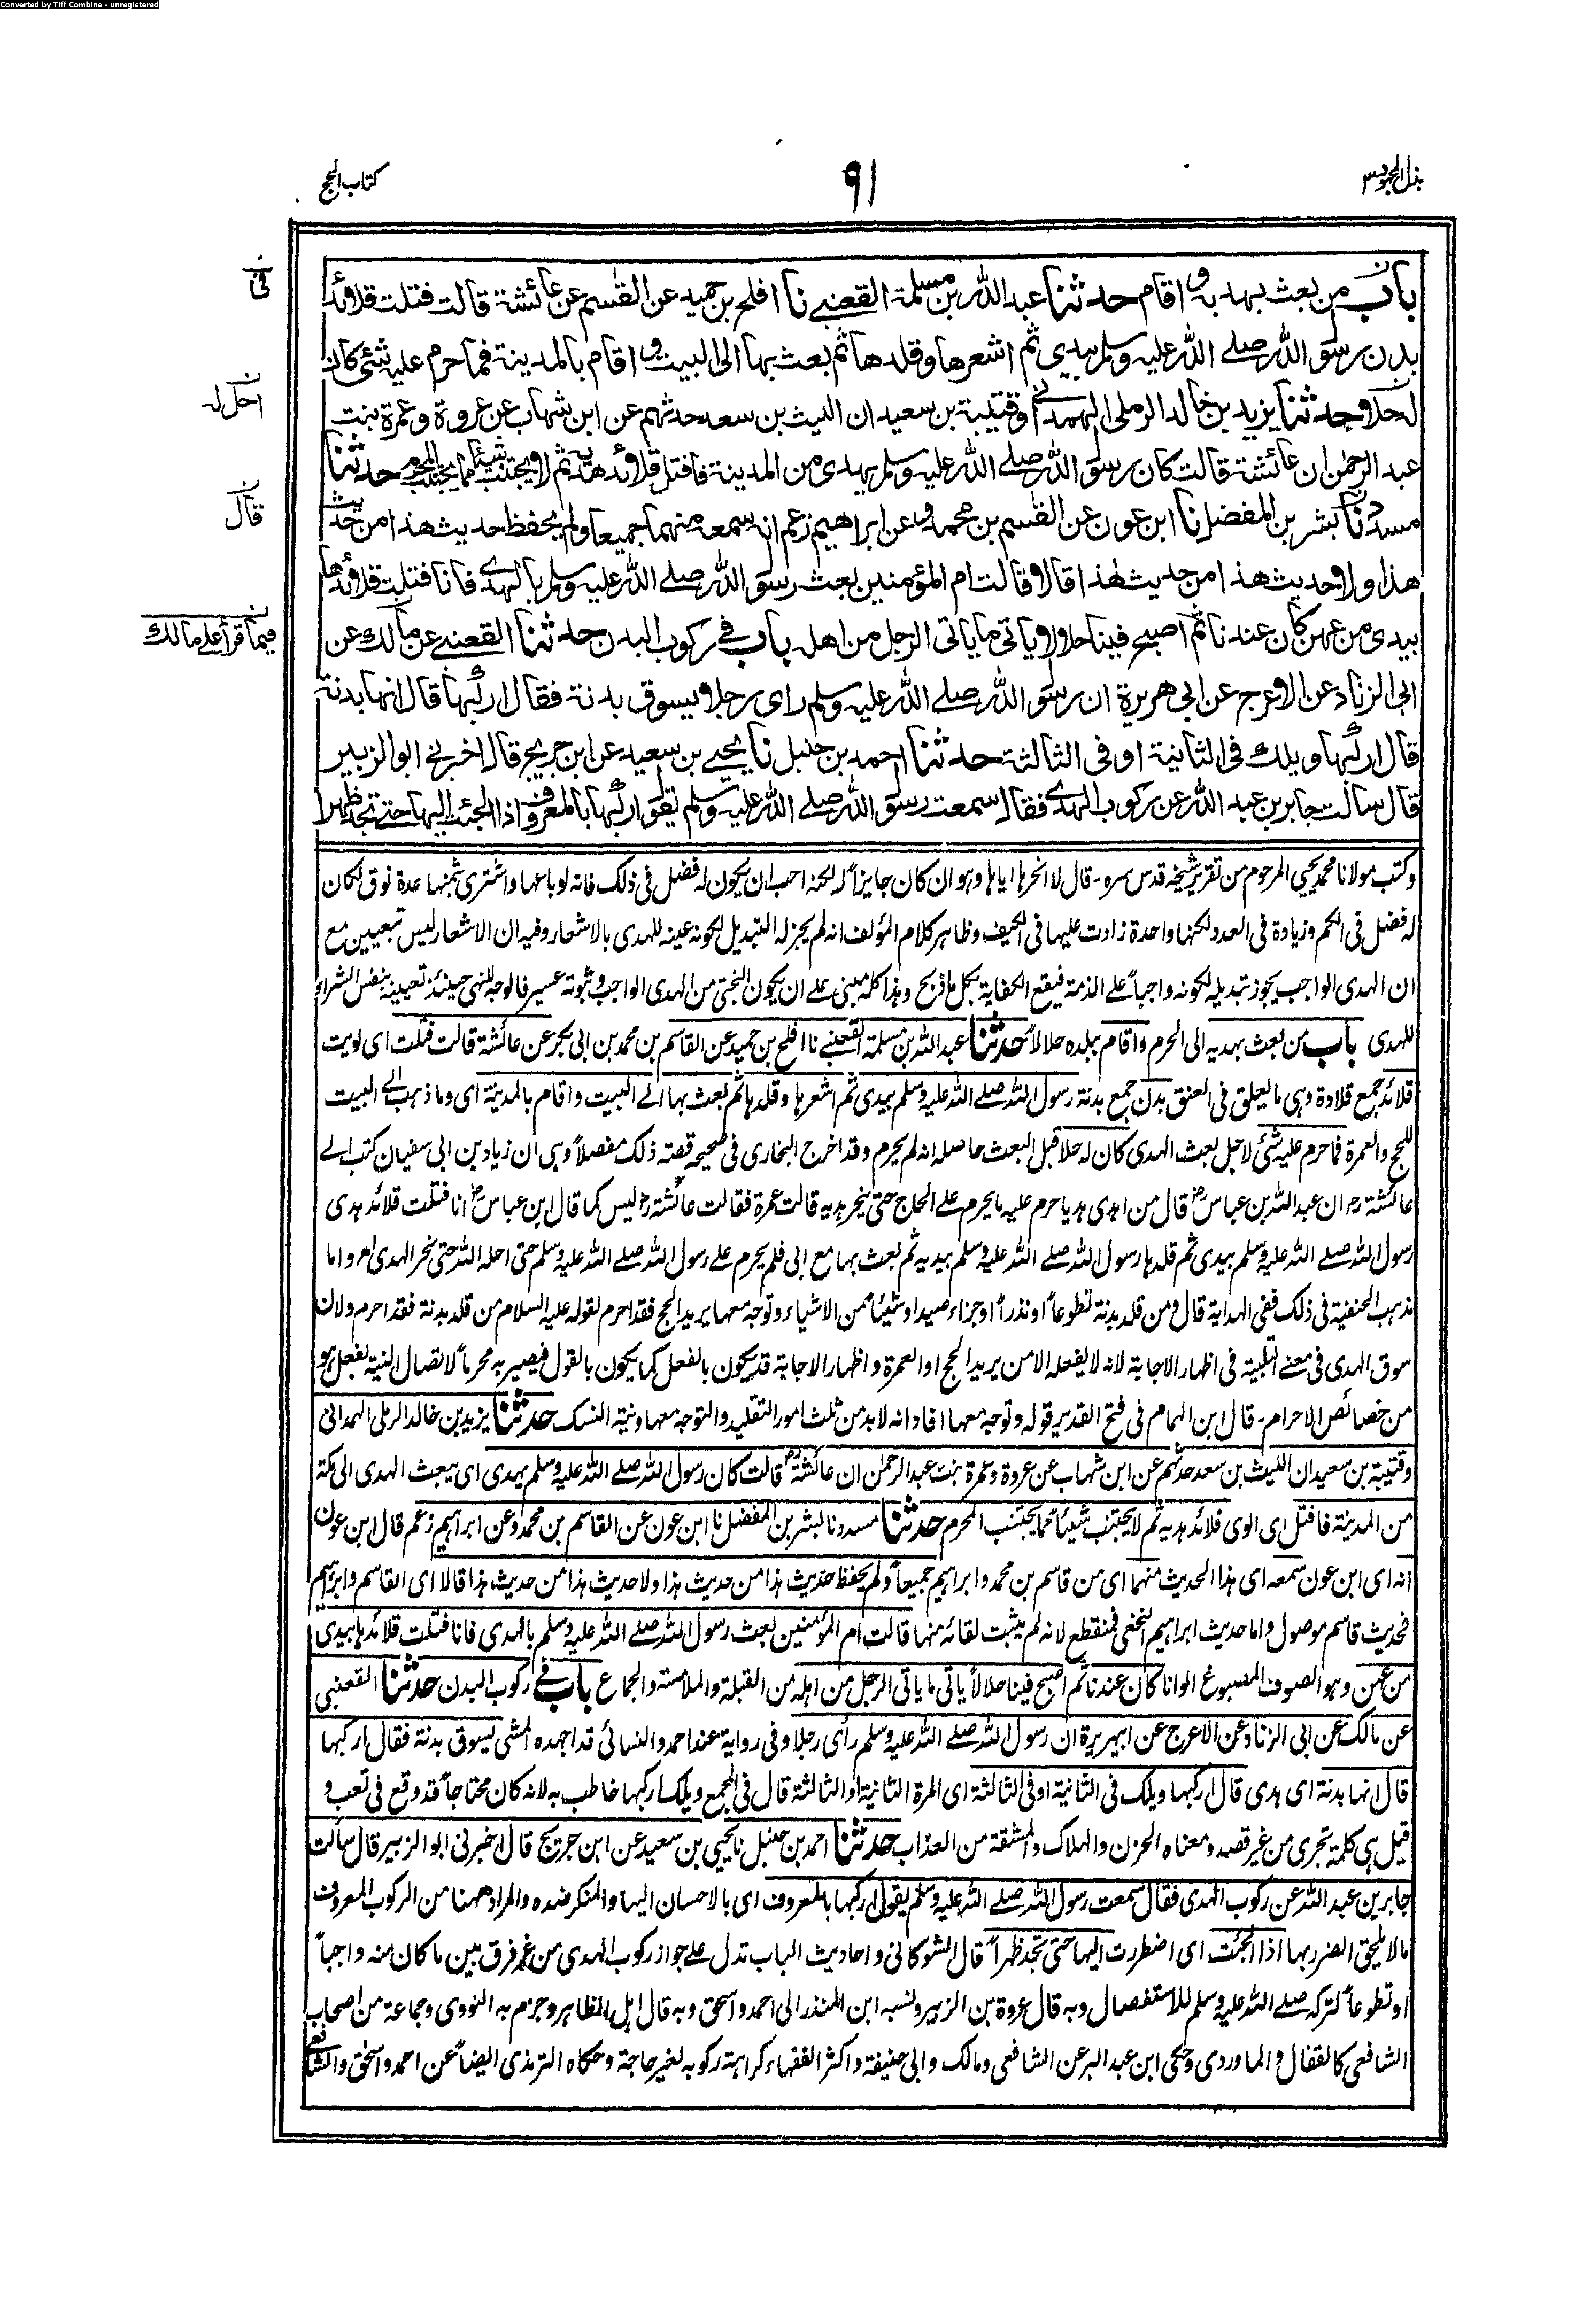 Converted by Tiff Combine - unregistered
بذل المجهود ٣
٩١
كتاب الحج
باب من بعث بهديه واقام حدثنا عبد الله بن مسلمة القعنبي نا افلح بن حميد عن القسم عن عائشة قالت فتلت قلائد
بدن رسول الله صلى الله عليه وسلم بيدي ثم اشعرها وقلدها ثم بعث بها الى البيت واقام بالمدينة فما حرم عليه شئ كان
له حلا حدثنا يزيد بن خالد الرملي الهمداني وقتيبة بن سعيد ان الليث بن سعد حدثهم عن ابن شهاب عن عروة وعمرة بنت
عبد الرحمن ان عائشة قالت كان رسول الله صلى الله عليه وسلم يهدى من المدينة فافتل قلائد هديه ثم لا يجتنب شيئا مما يجتنب المحرم حدثنا
مسدد نا بشر بن المفضل نا ابن عون عن القسم بن محمد وعن ابراهيم زعم انه سمعه منهما جميعا ولم يحفظ حديث هذا من حديث
هذا ولا حديث هذا من حديث هذا قالا قالت ام المؤمنين بعث رسول الله صلى الله عليه وسلم بالهدي فانا فتلت قلائدها
بيدى من عهن كان عندنا ثم اصبح فينا حلالا ياتى ما ياتى الرجل من اهله باب في ركوب البدن حدثنا القعنبي عن مالك عن
ابى الزناد عن الاعرج عن ابى هريرة ان رسول الله صلى الله عليه وسلم راى رجلا يسوق بدنة فقال اركبها قال انها بدنة
قال اركبها ويلك فى الثانية او فى الثالثة حدثنا احمد بن حنبل نا يحيى بن سعيد عن ابن جريج قال اخبرني ابو الزبير
قال سالت جابر بن عبد الله عن ركوب الهدي فقال سمعت رسول الله صلى الله عليه وسلم يقول اركبها بالمعروف اذا الجئت اليها حتى تجد ظهرا
فى
احل له
قال
فيما قرأ على مالك
وكتب مولانا محمد يحيى المرحوم من تقرير شيخه قدس سره - قال لا انحرها اياها وهو ان كان جايزا له لكنه احب ان يكون له فضل فى ذلك فانه لو باعها واشترى بثمنها عدة نوق لكان
له فضل فى الكم وزيادة فى العدد لكنها واحدة زادت عليها فى الكيف وظاهر كلام المؤلف انه لم يجز له التبديل لكونه عينه للهدى بالاشعار وفيه ان الاشعار ليس تبعيين مع
ان الهدى الواجب يجوز تبديله لكونه واجباً على الذمة فيقع الكفاية بكل ما ذبح وهذا كله مبنى على ان يكون النجتى من الهدى الواجب وثبوته عسير فالوجه للنهى حينئذ تعيينه بنفس الشراء
للهدى باب من بعث بهديه الى الحرم واقام ببلده حلالاً حدثنا عبد الله بن مسلمة القعنبى نا افلح بن حميد عن القاسم بن محمد بن ابى بكر عن عائشة قالت فتلت اى لويت
قلائد جمع قلادة وهى ما يعلق فى العنق بدن جمع بدنة رسول الله صلى الله عليه وسلم بيدى ثم اشعرها وقلدها ثم بعث بها الى البيت واقام بالمدينة اى وما ذهب الى البيت
للحج والعمرة فما حرم عليه شئ لاجل بعث الهدى كان له حلا قبل البعث حاصله انه لم يحرم وقد اخرج البخارى فى صحيحه قصة ذلك مفصلاً وهى ان زياد بن ابى سفيان كتب الى
عائشة رض ان عبد الله بن عباس رض قال من اهدى هديا حرم عليه ما يحرم على الحاج حتى ينحر هديه قالت عمرة فقالت عائشة رض ليس كما قال ابن عباس رض انا فتلت قلائد هدى
رسول الله صلى الله عليه وسلم بيدى ثم قلدها رسول الله صلى الله عليه وسلم بيديه ثم بعث بها مع ابى فلم يحرم على رسول الله صلى الله عليه وسلم حتى احله الله حتى نحر الهدى اھ واما
مذهب الحنفية فى ذلك ففى الهداية قال ومن قلد بدنة تطوعاً او نذراً او جزاء صيد او شيئاً من الاشياء وتوجه معها يريد الحج فقد احرم لقوله عليه السلام من قلد بدنة فقد احرم ولان
سوق الهدى فى معنى التلبية فى اظهار الاجابة لانه لا يفعله الا من يريد الحج او العمرة واظهار الاجابة قد يكون بالفعل كما يكون بالقول فيصير به محرماً لاتصال النية بفعل هو
من خصائص الاحرام - قال ابن الهمام فى فتح القدير قوله وتوجه معها افاد انه لا بد من ثلث امور التقليد والتوجه معها ونية النسك حدثنا يزيد بن خالد الرملى الهمدانى
وقتيبة بن سعيد ان الليث بن سعد حدثهم عن ابن شهاب عن عروة وعمرة بنت عبد الرحمن ان عائشة رض قالت كان رسول الله صلى الله عليه وسلم يهدى اى يبعث الهدى الى مكة
من المدينة فافتل اى الوى قلائد هديه ثم لا يجتنب شيئاً مما يجتنب المحرم حدثنا مسدد نا بشر بن المفضل نا ابن عون عن القاسم بن محمد وعن ابراهيم زعم قال ابن عون
انه اى ابن عون سمعه اى هذا الحديث منهما اى من قاسم بن محمد وابراهيم جميعاً ولم يحفظ حديث هذا من حديث هذا ولا حديث هذا من حديث هذا قالا اى القاسم وابراهيم
فحديث قاسم موصول واما حديث ابراهيم النخعى فمنقطع لانه لم يثبت لقائه منها قالت ام المؤمنين بعث رسول الله صلى الله عليه وسلم بالهدى فانا فتلت قلائدها بيدى
من عهن وهو الصوف المصبوغ الوانا كان عندنا ثم اصبح فينا حلالاً ياتى ما ياتى الرجل من اهله من القبلة والملامسة والجماع باب فى ركوب البدن حدثنا القعنبى
عن مالك عن ابى الزناد عن الاعرج عن ابى هريرة ان رسول الله صلى الله عليه وسلم رأى رجلا وفى رواية عند احمد والنسائى قد اجهده المشى يسوق بدنة فقال اركبها
قال انها بدنة اى هدى قال اركبها ويلك فى الثانية او فى الثالثة اى المرة الثانية او الثالثة قال فى المجمع ويلك اركبها خاطب به لانه كان محتاجاً قد وقع فى تعب و
قيل هى كلمة تجرى من غير قصد ومعناه الحزن والهلاك والمشقة من العذاب حدثنا احمد بن حنبل نا يحيى بن سعيد عن ابن جريج قال اخبرنى ابو الزبير قال سألت
جابر بن عبد الله عن ركوب الهدى فقال سمعت رسول الله صلى الله عليه وسلم يقول اركبها بالمعروف اى بالاحسان اليها والمنكر ضده والمراد ههنا من الركوب المعروف
ما لا يلحق الضرر بها اذا الجئت اى اضطررت اليها حتى تجد ظهراً قال الشوكانى واحاديث الباب تدل على جواز ركوب الهدى من غير فرق بين ما كان منه واجباً
او تطوعاً لتركه صلى الله عليه وسلم للاستفصال وبه قال عروة بن الزبير ونسبه ابن المنذر الى احمد واسحق وبه قال اهل الظاهر وجزم به النووى وجماعة من اصحاب
الشافعى كالقفال والماوردى وحكى ابن عبد البر عن الشافعى ومالك وابى حنيفة واكثر الفقهاء كراهة ركوبه لغير حاجة وحكاه الترمذى ايضاً عن احمد واسحق والشافعى